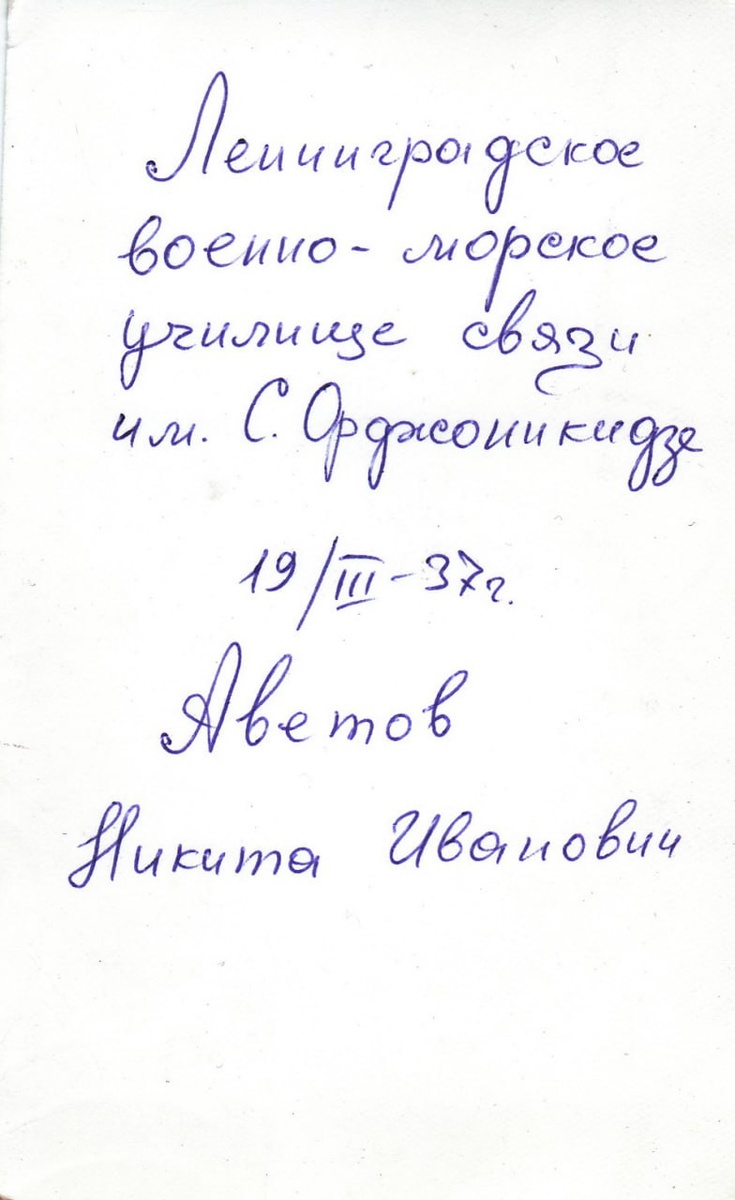 Ленинградское
военно-морское
училище связи
им. С. Орджоникидзе
19/III-37г.
Аветов
Никита Иванович